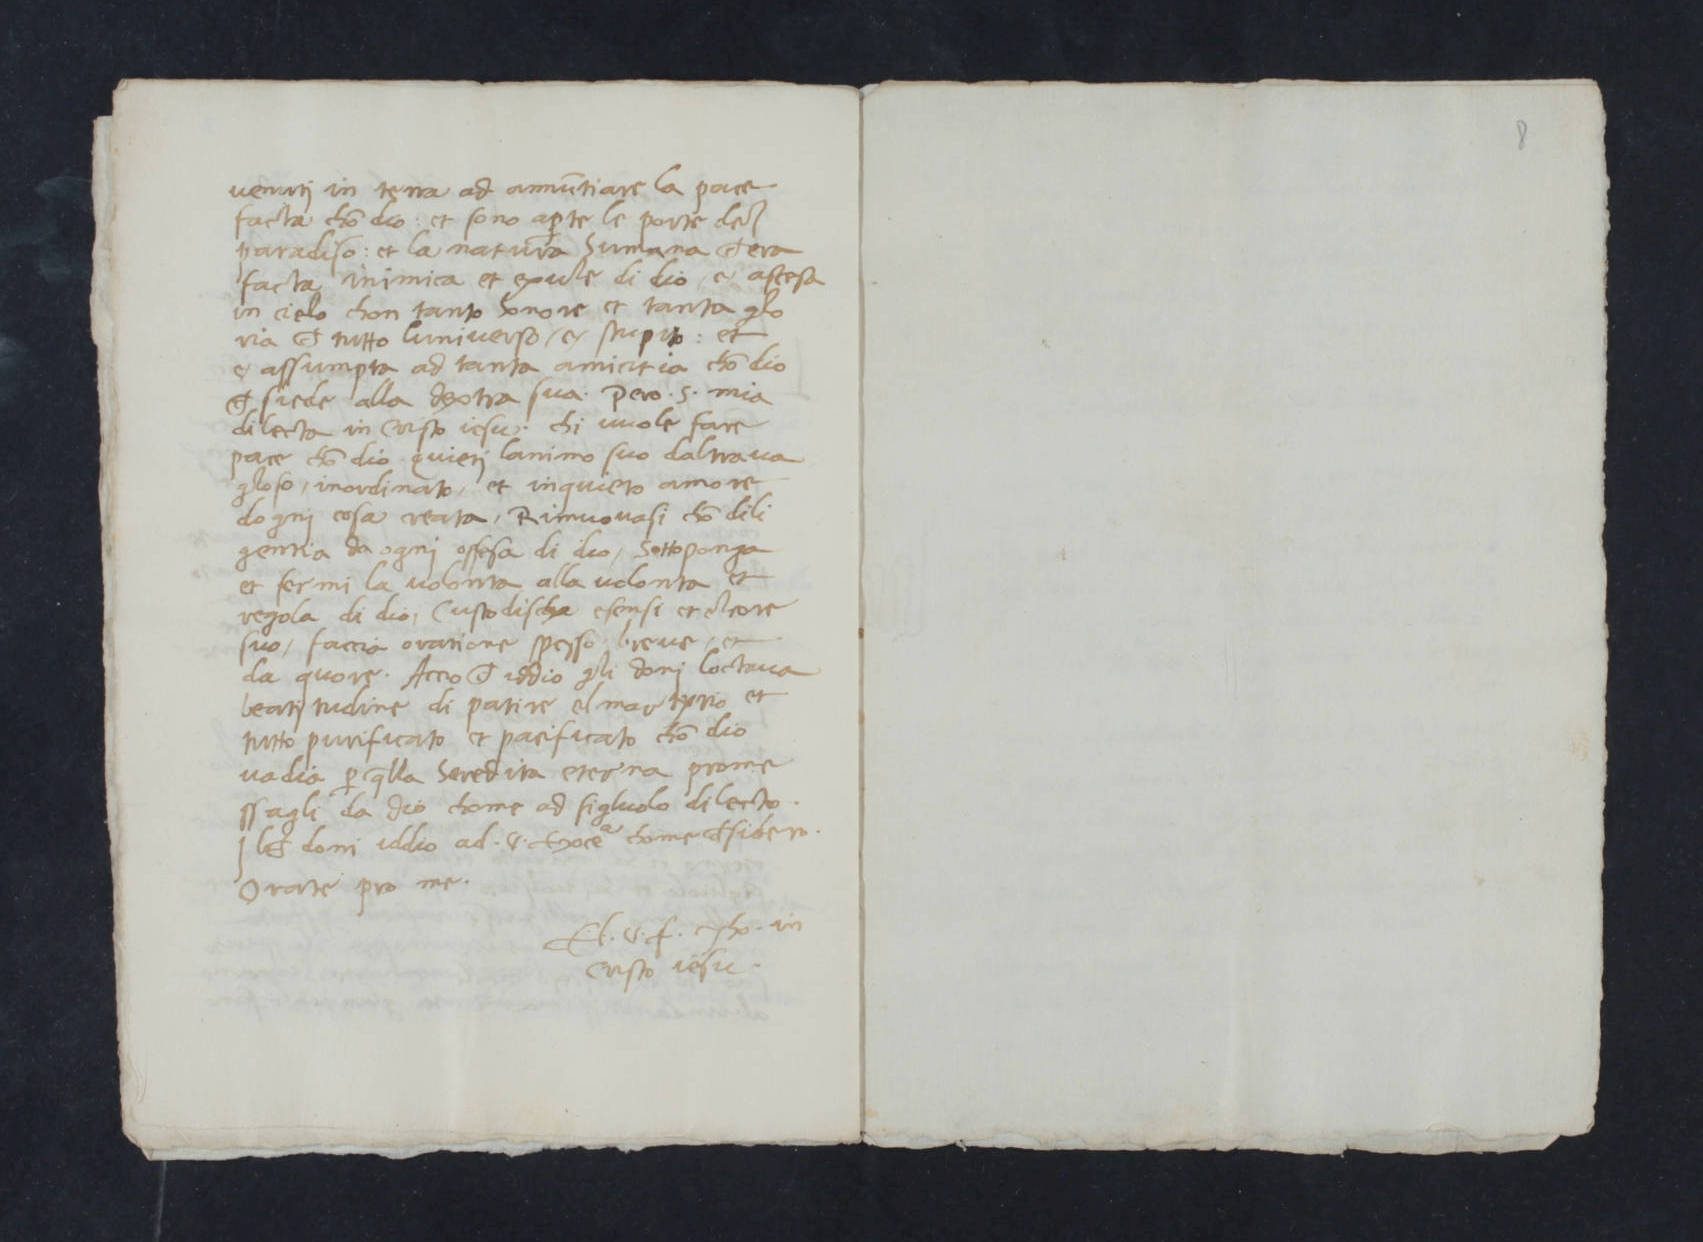 venuti in terra ad annu͞tiare la pace
facta chō dio: et sono ap̱te le porte del
paradiso: et la natura humana ch̄ era
facta inimica et exule di dio, e ascesa
in cielo chon tanto honore et tanta glo
ria ch̄ tutto luniverso / e stupito: et
e assumpta ad tanta amicitia chō dio
ch̄ siede alla dextra sua. Pero. S. mia
dilecta in Cristo iesu. chi vuole fare
pace chō dio quieti lanimo suo daltrava
gloso, inordinato, et inquieto amore
dogni cosa creata, Rimuovasi chō dili
gentia da ogni offesa di dio, Sottoponga
et fermi la volonta alla volonta et
regola di dio, Custodischa esensi et elcore
suo, faccia oratione spesso, breve, et
da quore. Accio ch̄ iddio gli doni loctava
beatitudine di patire el martyrio et
tutto purificato et pacificato chō dio
vadia p̱ q̄lla heredita eterna prome
ssagli da dio chome ad figluolo dilecto.
Il ch̄ doni iddio ad. V. chome desidero.
Orate pro me.
V. f. in
Cristo iesu.
8